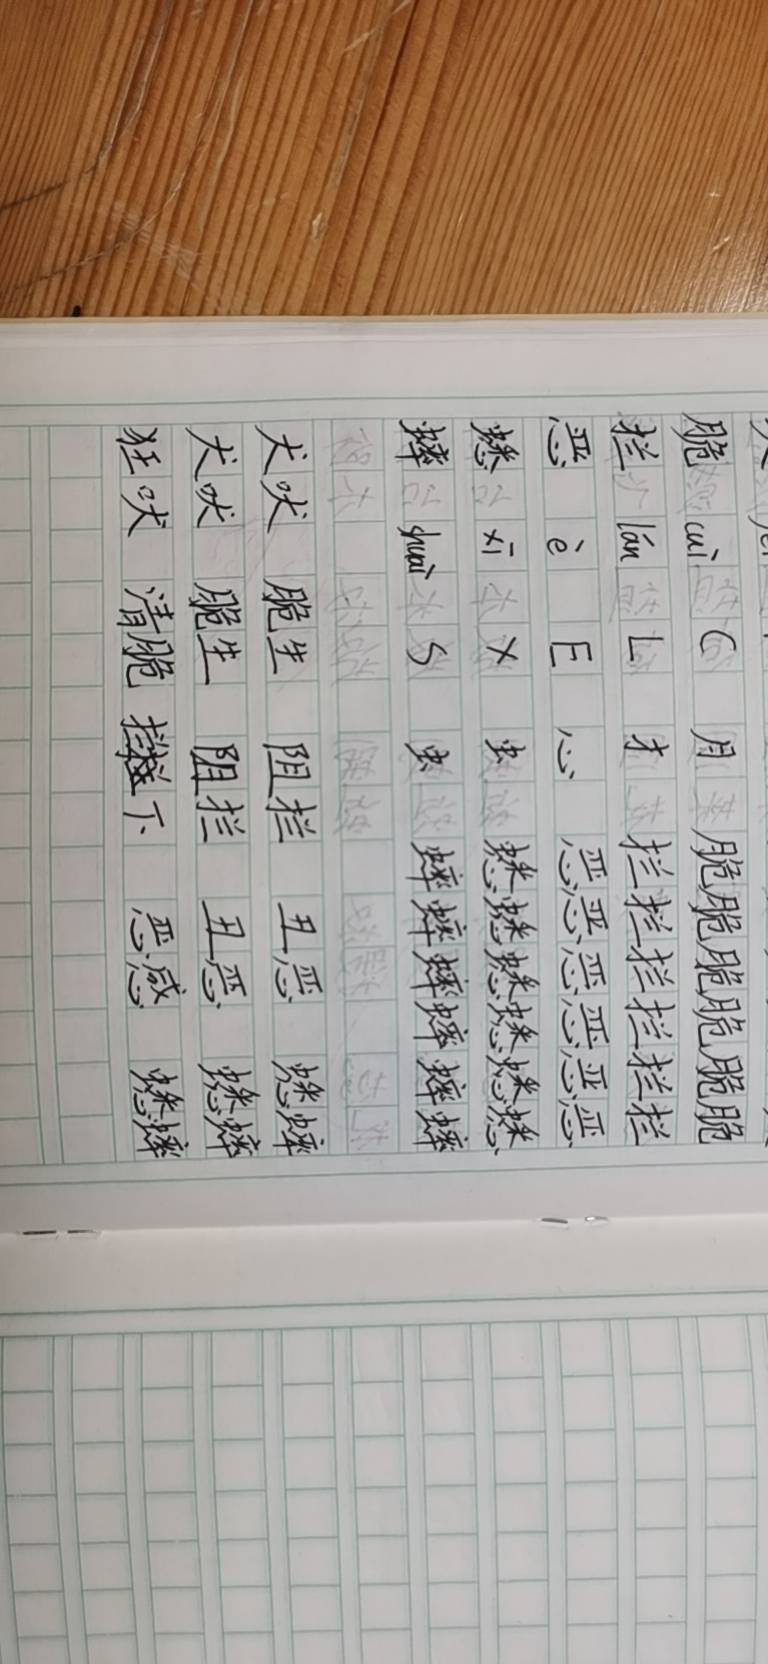 脆 cuì C 月 脆脆脆脆脆脆
拦 lán L 扌 拦拦拦拦拦拦
恶 è E 心 恶恶恶恶恶恶
蟋 xī X 虫 蟋蟋蟋蟋蟋蟋
蟀 shuài S 虫 蟀蟀蟀蟀蟀蟀
犬吠 脆生 阻拦 丑恶 蟋蟀
犬吠 脆生 阻拦 丑恶 蟋蟀
狂吠 清脆 拦下 恶感 蟋蟀